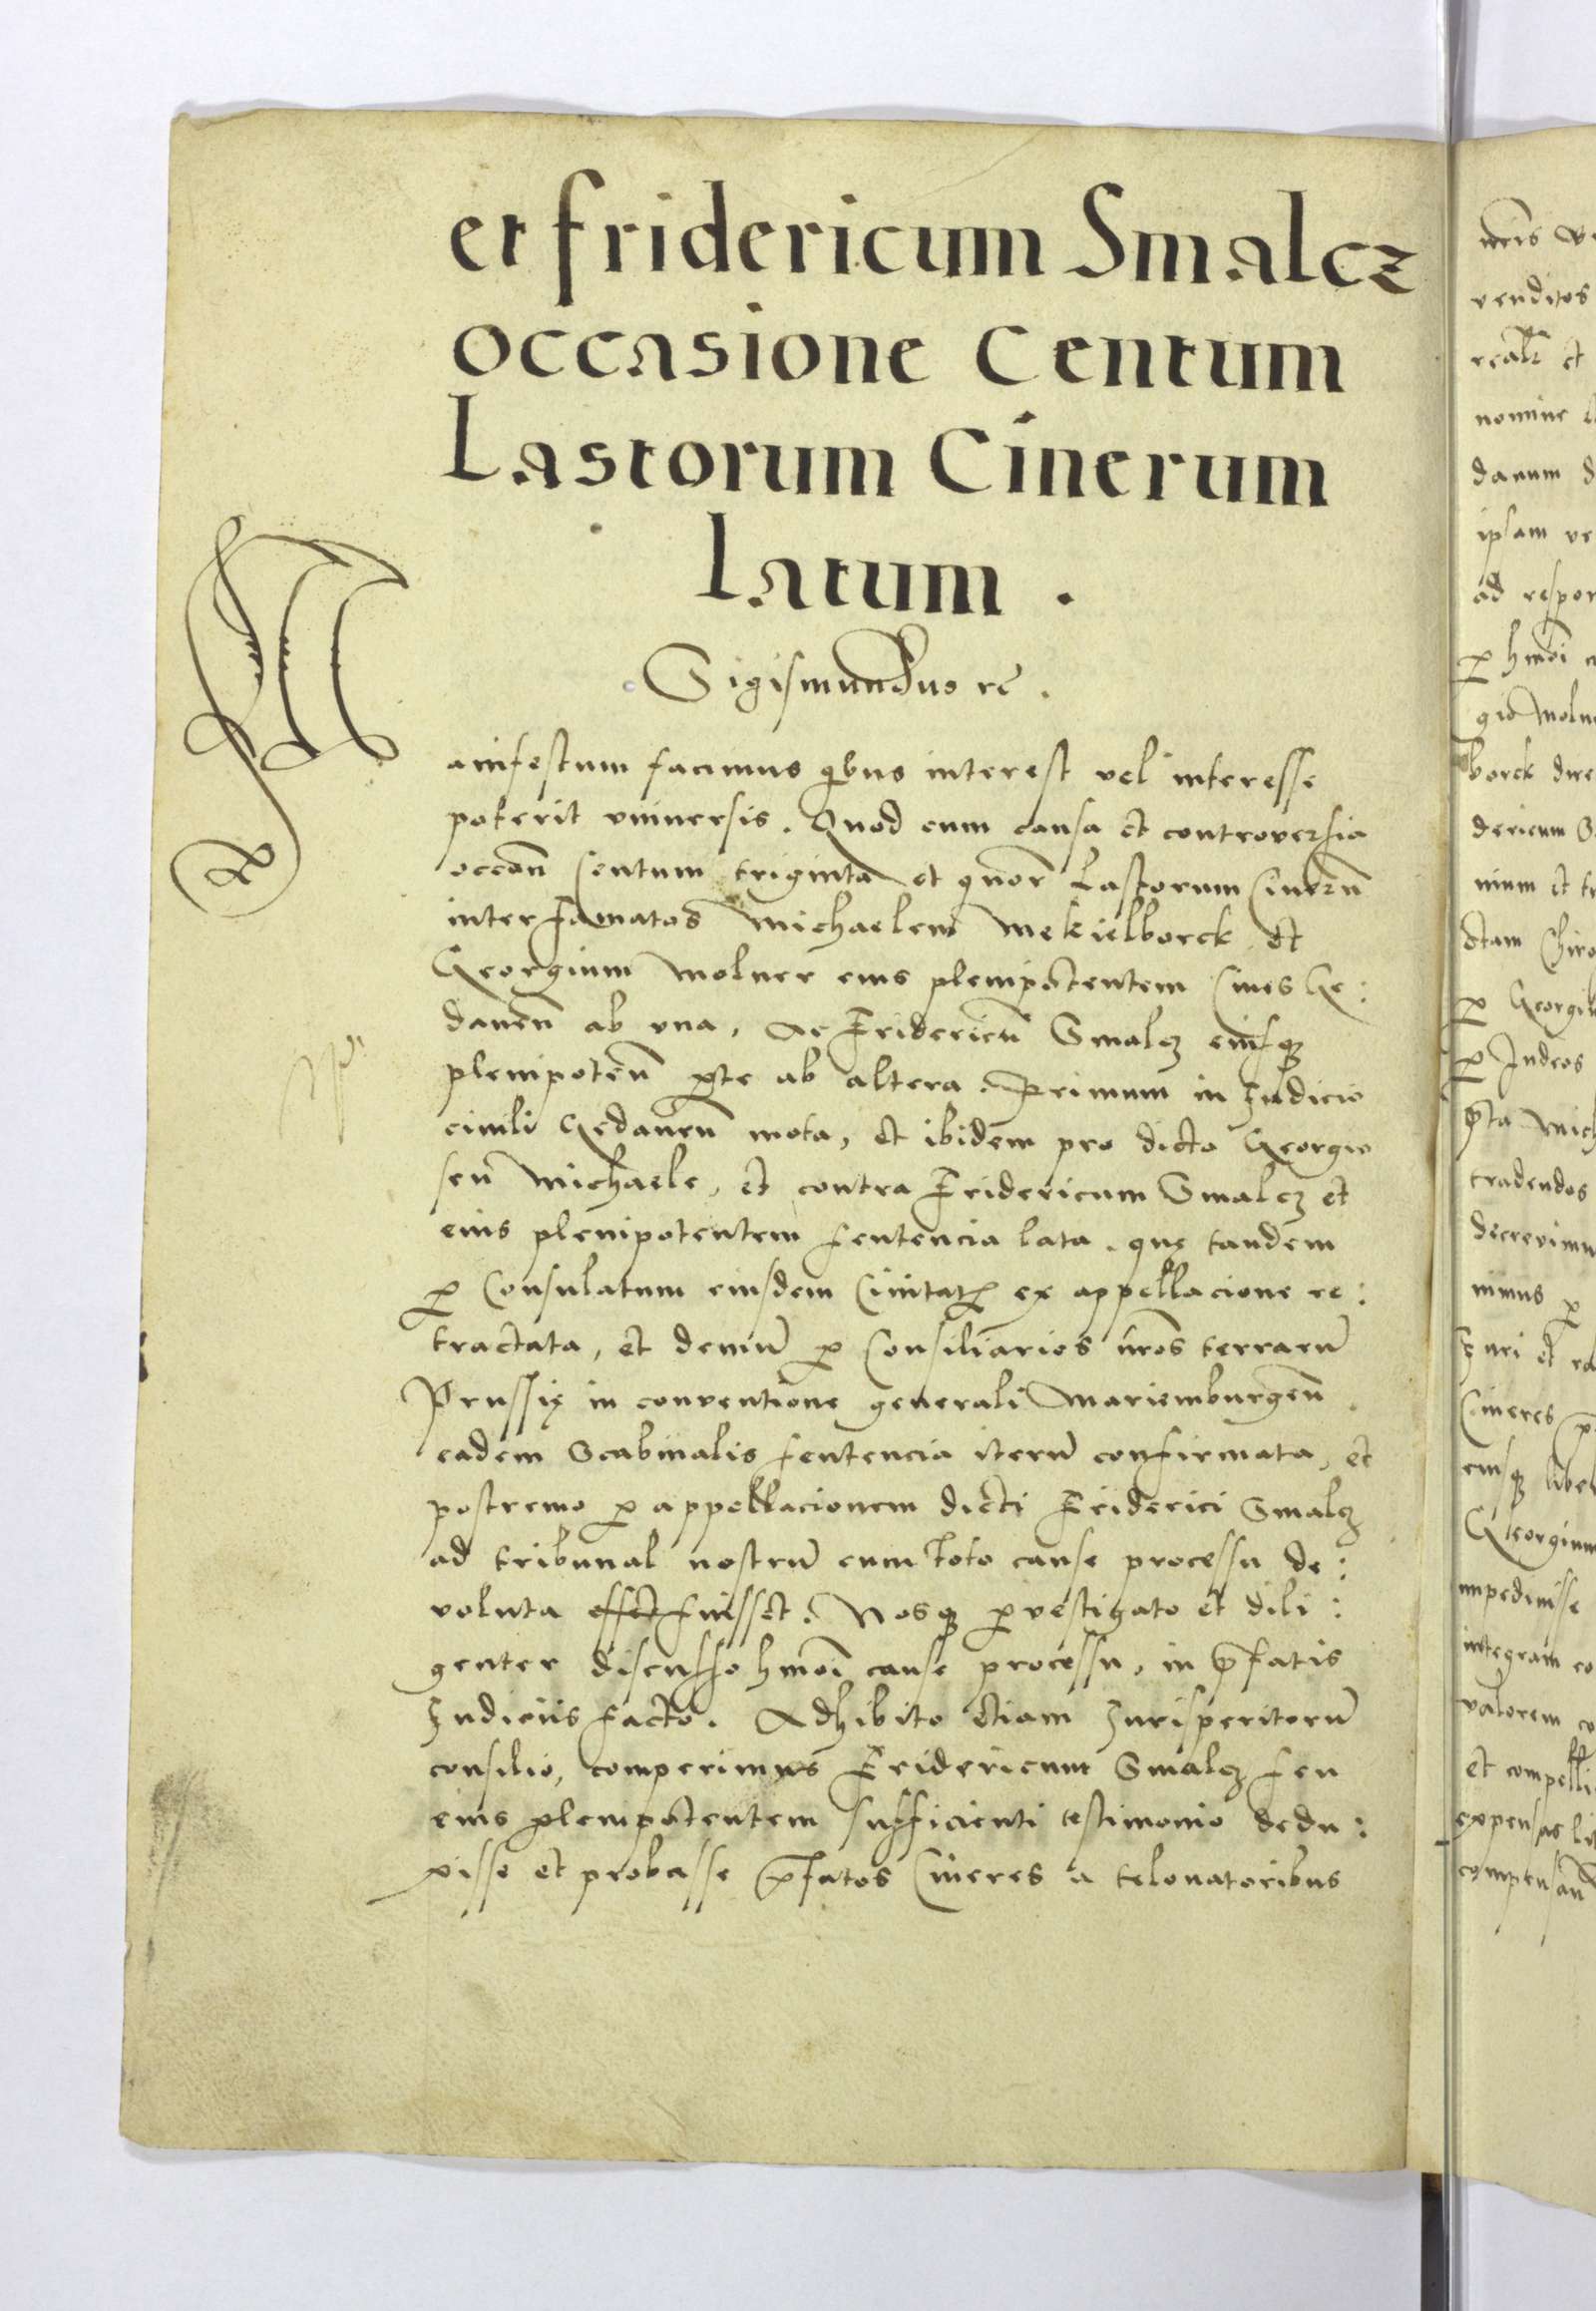 et fridericum Smalcz
occasione Centum
Lastorum Cinerum
latum .
Sigismundus rē .
Manifestum facimus qbus interest vel interesse
poterit vniuersis . Quod cum causa et controversia
occōn Centum triginta et quor Lastorum Cinerū
inter famatos Michaelem Mekielborck et
Georgium Molner eius plenipotentem Ciues Ge :
danen̄ ab vna , Ac Fridericū Smalcz eiusqȝ
plenipoten̄ pte ab altera . Primum in Judicio
ciuili Gedanen̄ mota , et ibidem pro dicto Georgio
seu Michaele , et contra Fridericum Smalcz et
eius plenipotentem sentencia lata . quę tandem
p Consulatum eiusdem Ciuitatꝭ ex appellacione re :
tractata , et demū p Consiliarios nros terrarū
Prussię in conventione generali Mariemburgen̄ .
eadem Scabinalis sentencia iterū confirmata , et
postremo p appellacionem dicti Friderici Smalcz
ad tribunal nostrū cum toto cause processu de :
voluta esset fuisset . Nosqȝ pvestigato et dili :
genter discusso hmōi cause processu , in pfatis
Judicijs facto . Adhibito etiam Jurisperitorū
consilio , comperimus Fridericum Smalcz seu
eius plenipotentem sufficienti testimonio dedu :
xisse et probasse pfatos Cineres a telonatoribus
venditos
nomine
ipsam
tradendos
Cineres
Georgium
integram
valorem